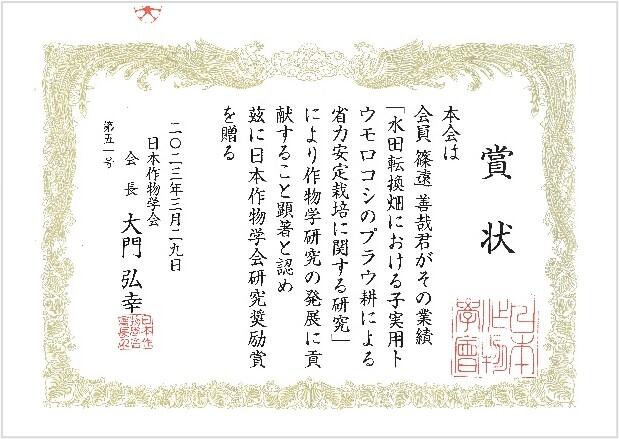 賞状
本会は
会員 篠遠 善哉君がその業績
「水田転換畑における子実用ト
ウモロコシのプラウ耕による
省力安定栽培に関する研究」
により作物学研究の発展に貢
献すること顕著と認め
玆に日本作物学会研究奨励賞
を贈る
二〇二三年三月二九日
日本作物学会
会長 大門 弘幸
第五一号
日本作物学會